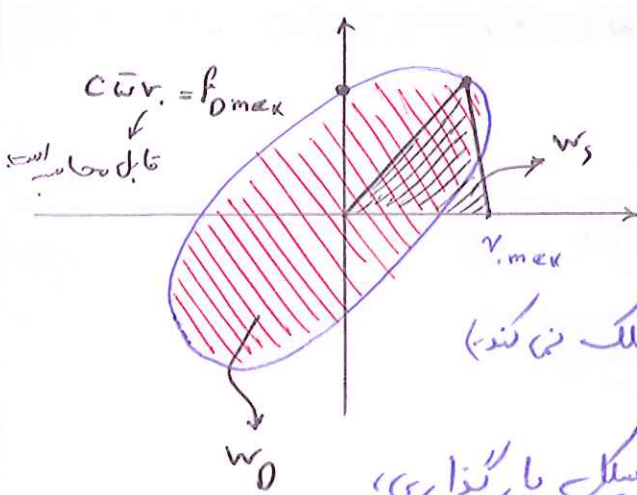 c ω̄ v. = f_D max
قابل محاسبه
است
W_s
v. max
ملک نمی کند.)
سیکل بارگذاری،
W_D